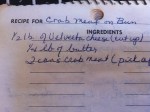 RECIPE FOR Crab Meat on Bun
INGREDIENTS
1/2 lb of Velveeta cheese (cut up)
1/4 lb of butter
2 cans crab meat (pick